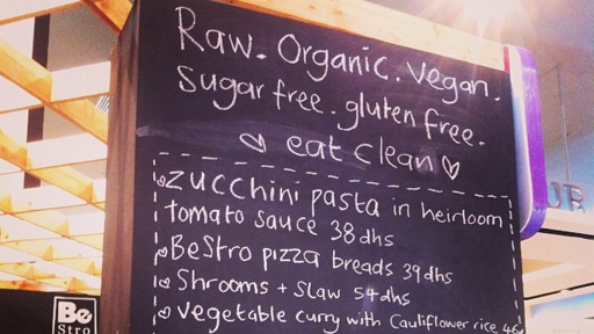 Raw. Organic. Vegan.
sugar free. gluten free.
eat clean
zucchini pasta in heirloom
tomato sauce 38 dhs
BeStro pizza breads 39 dhs
Shrooms + Slaw 54 dhs
vegetable curry with Cauliflower rice
Be
Stro